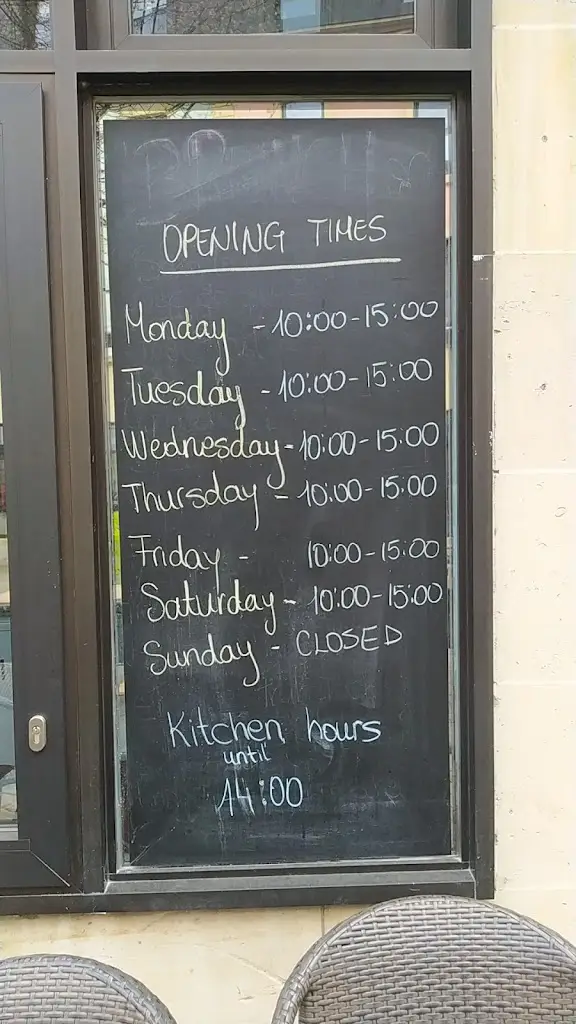 OPENING TIMES
Monday - 10:00-15:00
Tuesday - 10:00-15:00
Wednesday - 10:00-15:00
Thursday - 10:00-15:00
Friday - 10:00-15:00
Saturday - 10:00-15:00
Sunday - CLOSED
Kitchen hours
until
14:00